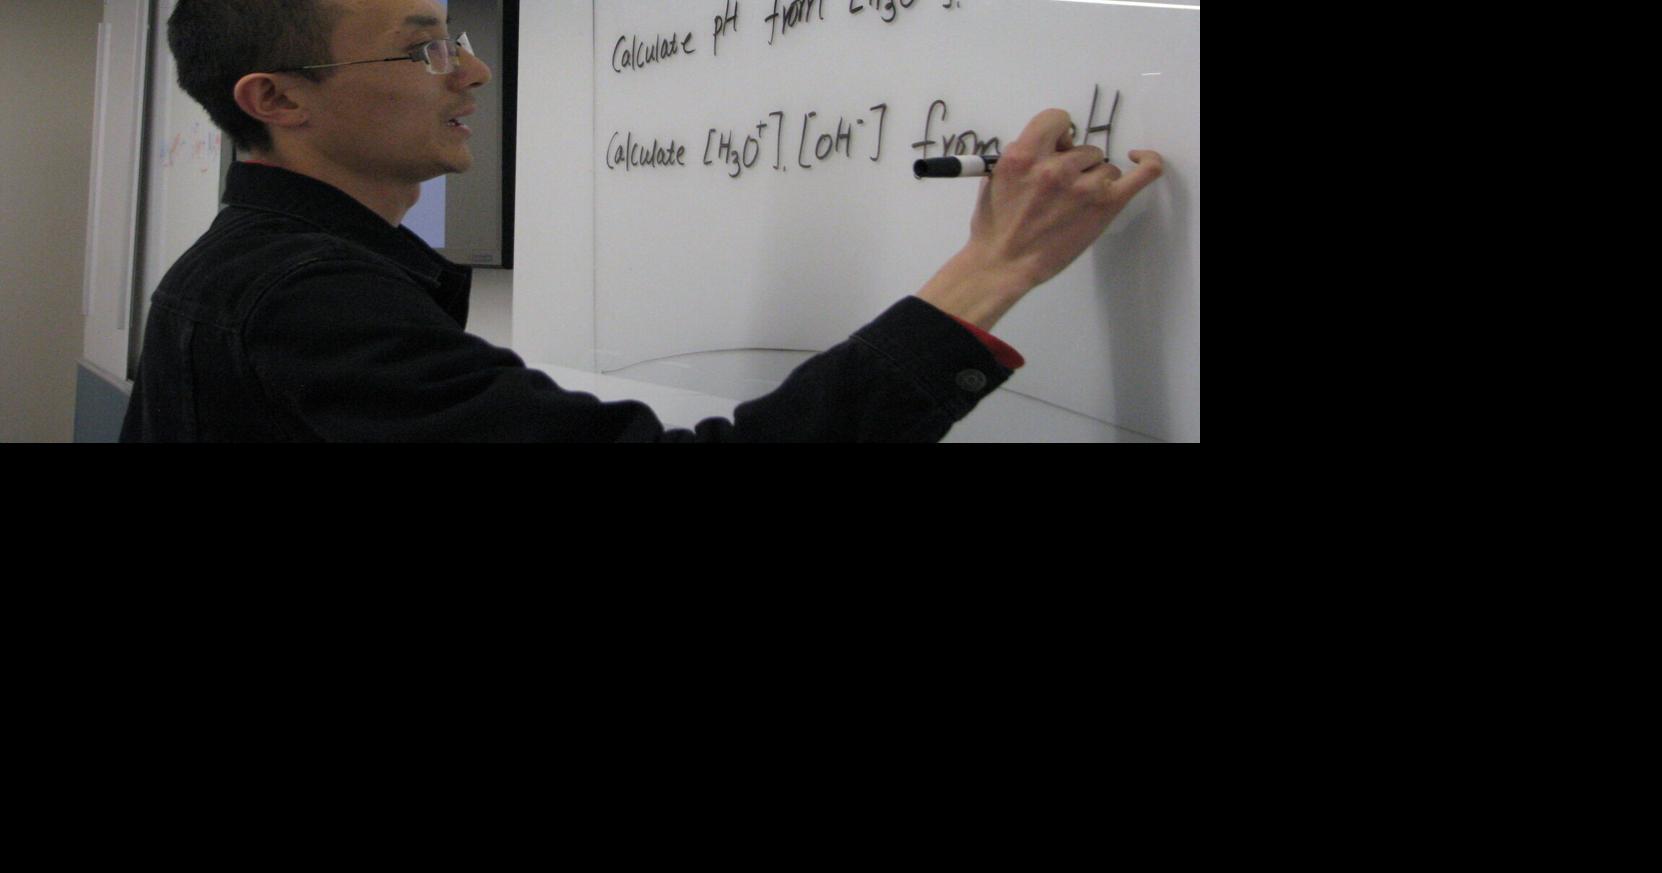 Calculate pH from [H3O+].
Calculate [H3O+], [OH-] from pH